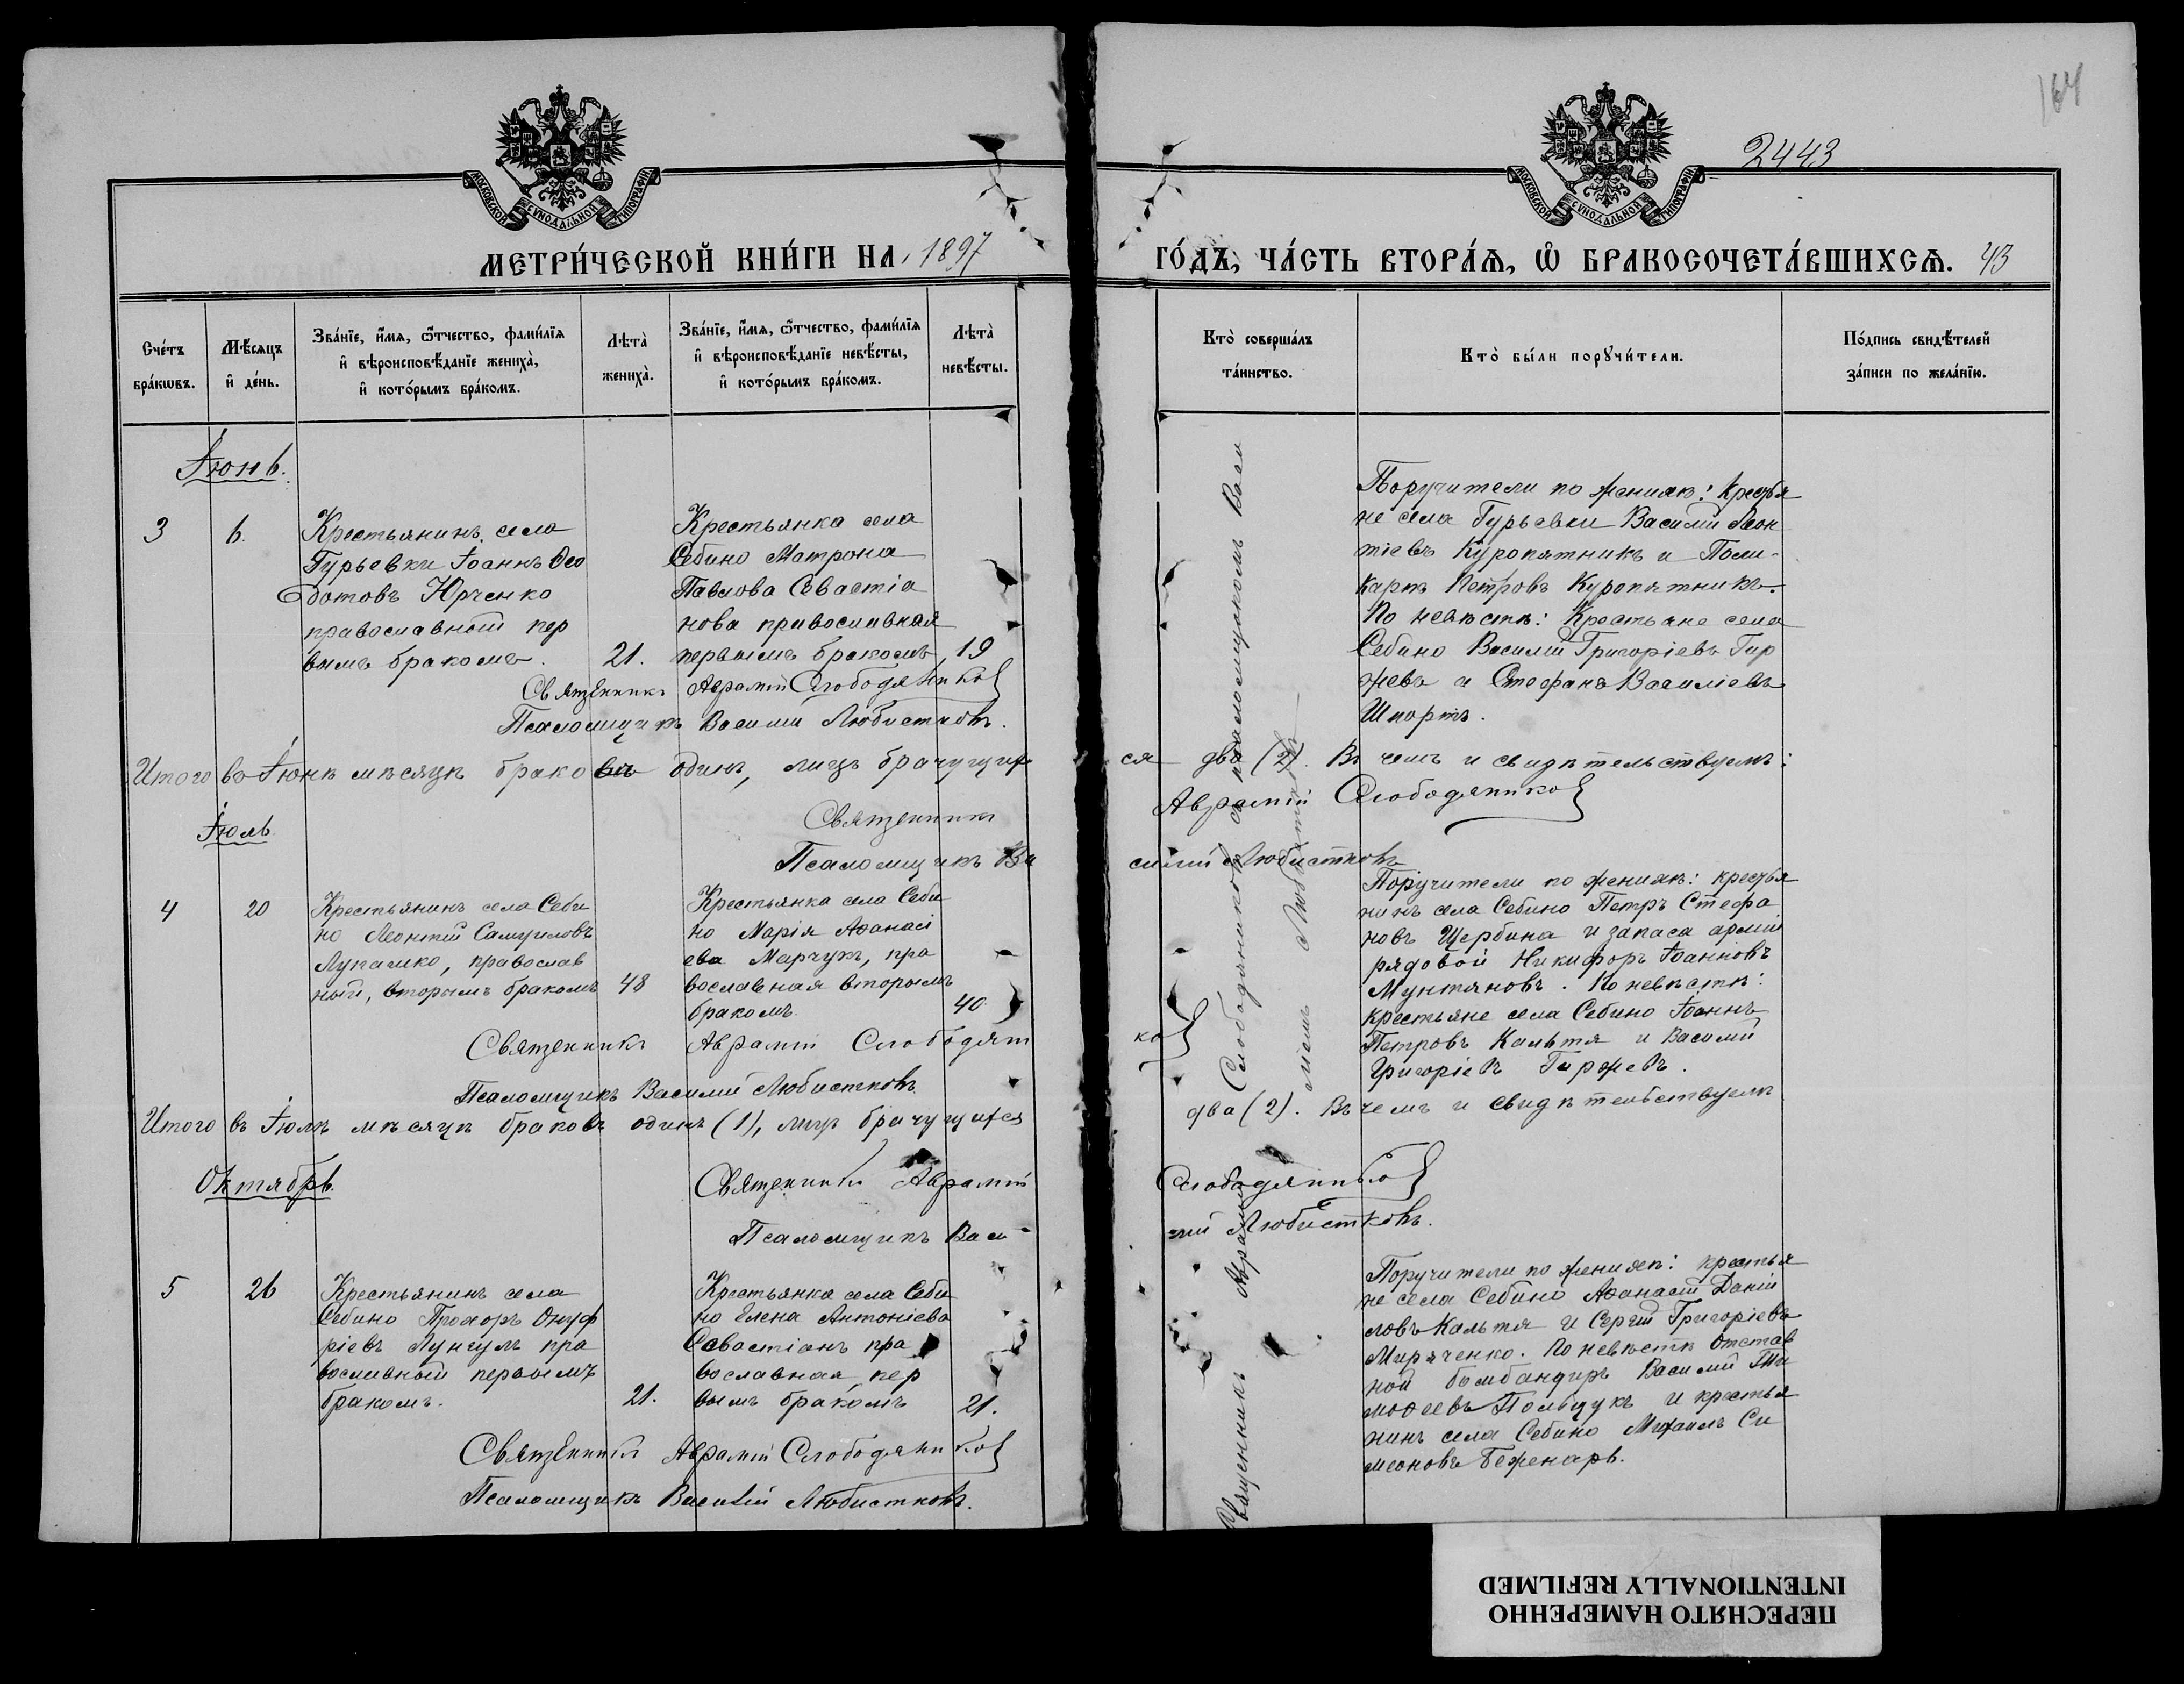 164
2443
МОСКОВСКОЙ СѴНОДАЛЬНОЙ ТИПОГРАФІИ
МОСКОВСКОЙ СѴНОДАЛЬНОЙ ТИПОГРАФІИ
МЕТРИ́ЧЕСКОЙ КНИ́ГИ НА 1897
ГО́ДЪ, ЧА́СТЬ ВТОРА́Ѧ, Ѽ БРАКОСОЧЕТА́ВШИХСѦ. 43
Сче́тъ
бра́кѡвъ.
Мѣ́сяцъ
и҆ де́нь.
Зва́нїе, и҆́мѧ, ѻ҆́тчество, фами́лїѧ
и҆ вѣроисповѣ́данїе жениха̀,
и҆ кото́рымъ бра́комъ.
Лѣта̀
жениха̀.
Зва́нїе, и҆́мѧ, ѻ҆́тчество, фами́лїѧ
и҆ вѣроисповѣ́данїе невѣ́сты,
и҆ кото́рымъ бра́комъ.
Лѣта̀
невѣ́сты.
Кто̀ соверша́лъ
та́инство.
Кто̀ бы́ли порꙋчи́тели.
По́дпись свидѣ́телей
за́писи по жела́нїю.
Іюнь.
3
6.
Крестьянинъ села
Гурьевки Іоаннъ Ѳео
дотовъ Юрченко
православный пер
вымъ бракомъ.
21.
Крестьянка села
Себино Матрона
Павлова Севастіа
нова православная
первымъ бракомъ
19
Поручители по женихѣ: Крестья
не села Гурьевки Василій Леон
тіевъ Куропятникъ и Поли-
карпъ Петровъ Куропятникъ.
По невѣстѣ: Крестьяне села
Себино Василій Григоріевъ Гир
жевъ и Стефанъ Василіевъ
Шпортъ.
Священникъ Аврамій Слободянико
Псаломщикъ Василій Любистковъ.
Итого въ Іюнѣ мѣсяцѣ браковъ одинъ, лицъ брачущих
ся два (2). Въ чемъ и свидѣтельствуемъ:
Священникъ Аврамій Слободянико
Іюль
Псаломщикъ Ва
силій Любистковъ
4
20
Крестьянинъ села Себи
но Леонтій Самуиловъ
Лупашко, православ
ный, вторымъ бракомъ
48
Крестьянка села Себи
но Марія Аѳанасі
ева Марчукъ, пра
вославная вторымъ
бракомъ.
40
Поручители по женихѣ: крестья
нинъ села Себино Петръ Стефа
новъ Щербина и запаса арміи
рядовой Никифоръ Іоанновъ
Мунтяновъ. По невѣстѣ:
крестьяне села Себино Іоаннъ
Петровъ Кальтя и Василій
Григоріевъ Гиржевъ.
Священникъ Аврамій Слободян
ко
Псаломщикъ Василій Любистковъ.
Итого въ Іюлѣ мѣсяцѣ браковъ одинъ (1), лицъ брачущихся
два (2). Въ чемъ и свидѣтельствуемъ
Октябрь.
Священникъ Аврамій
Слободянико
Псаломщикъ Васи
лій Любистковъ.
5
26
Крестьянинъ села
Себино Прохоръ Онуф
ріевъ Лунгулъ пра
вославный первымъ
бракомъ.
21.
Крестьянка села Себи
но Елена Антоніева
Севастіанъ пра
вославная, пер
вымъ бракомъ
21.
Поручители по женихѣ: крестья
не села Себино Аѳанасій Даніи
ловъ Кальтя и Сергій Григоріевъ
Мирзченко. По невѣстѣ Отстав
ной бомбандиръ Василій Ти
моѳеевъ Полищукъ и крестья
нинъ села Себино Михаилъ Си
меоновъ Беженаръ.
Священникъ Аврамій Слободянико
Псаломщикъ Василій Любистковъ.
Священникъ Аврамій Слободяниковъ съ псаломщикомъ Васи
ліемъ Любистковымъ
ПЕРЕСНЯТО НАМЕРЕННО
INTENTIONALLY REFILMED